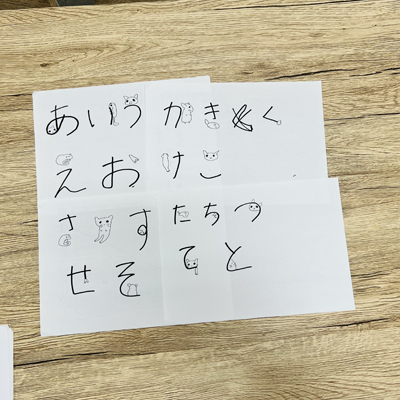 あいう かきく
えお けこ
さ す たちつ
せそ てと